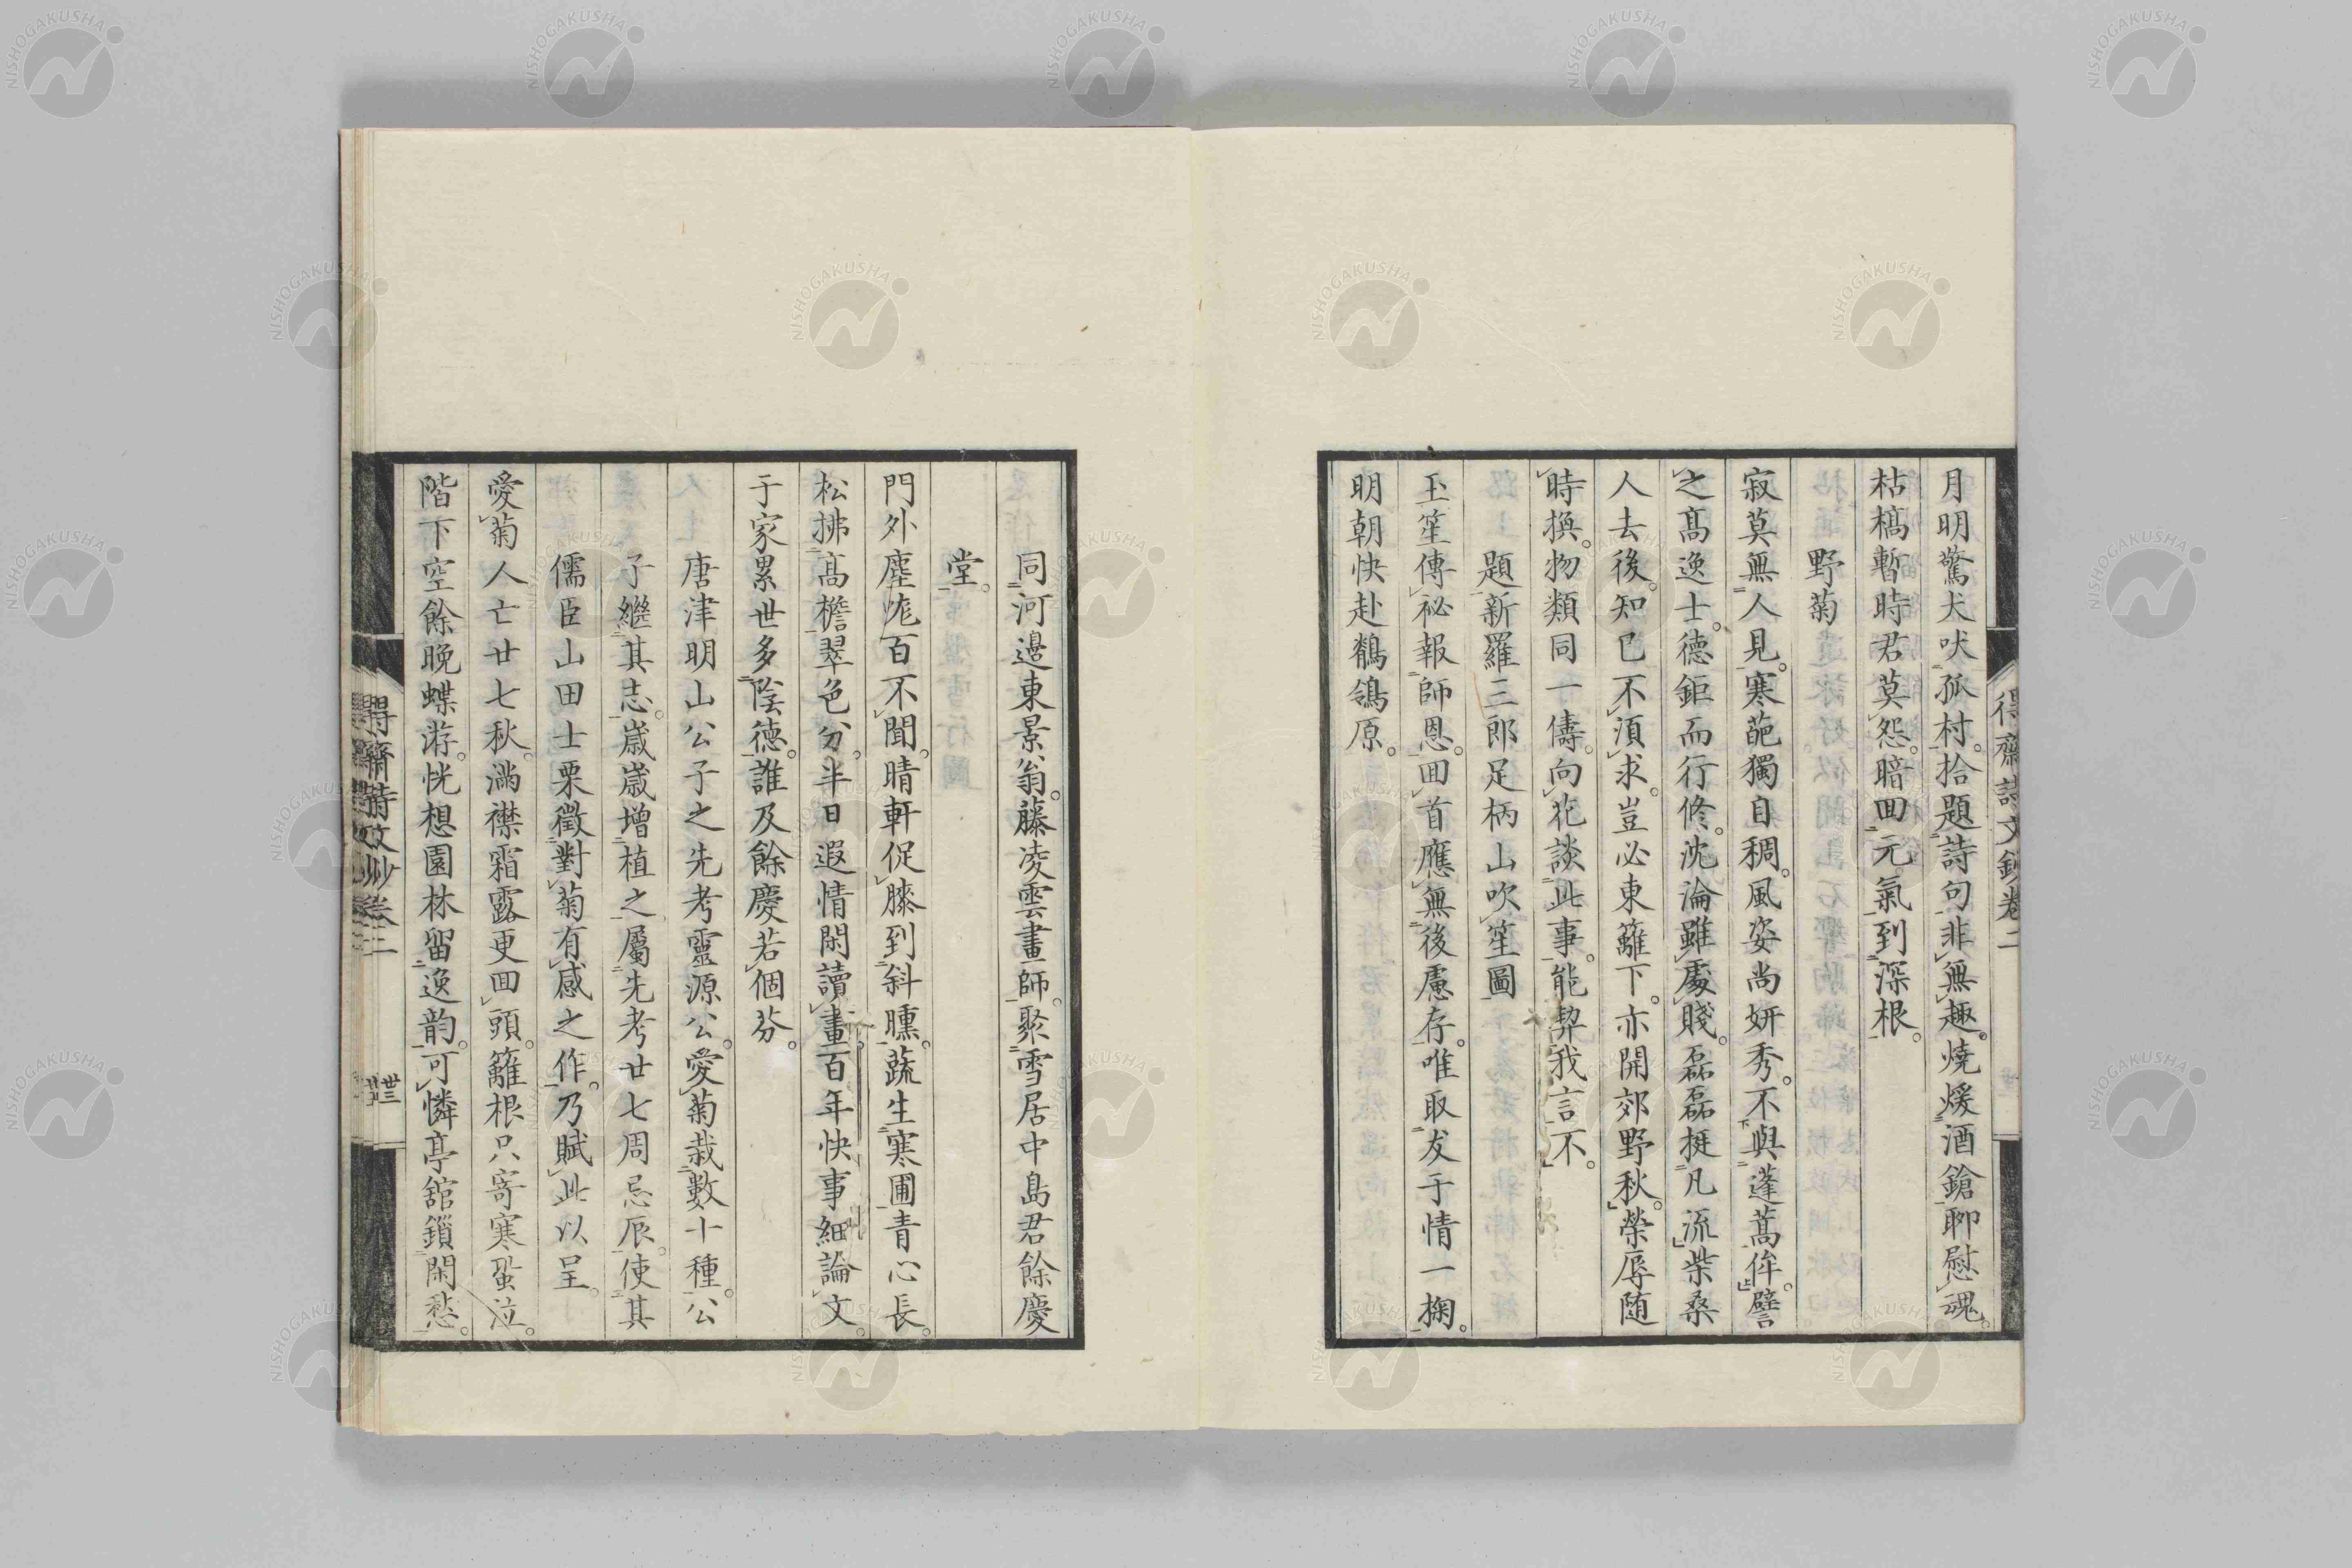 月明驚犬吠孤村。拾題詩句非無趣。燒煖酒鎗聊慰魂。
枯槁暫時君莫怨。暗回元氣到深根。
野菊
寂莫無人見。寒葩獨自稠。風姿尚妍秀。不與蓬蒿侔。譬
之高逸士。德鉅而行修。沈淪雖處賤。磊磊挺凡流。柴桑
人去後。知己不須求。豈必東籬下。亦開郊野秋。榮辱随
時換。物類同一儔。向花談此事。能契我言不。
題新羅三郎足柄山吹笙圖
玉笙傳祕報師恩。回首應無後慮存。唯取友于情一掬。
明朝快赴鶺鴒原。
得齋詩文鈔卷二
同河邊東景翁。藤凌雲畫師。聚雪居中島君餘慶
堂。
門外塵厖百不聞。晴軒促膝到斜曛。蔬生寒圃青心長。
松拂高檐翠色分。半日遐情閑讀畫。百年快事細論文。
于家累世多陰德。誰及餘慶若個芬。
唐津明山公子之先考靈源公。愛菊栽數十種。公
子繼其志。歲歲增植之。屬先考廿七周忌辰。使其
儒臣山田士栗徵對菊有感之作。乃賦此以呈。
愛菊人亡廿七秋。滿襟霜露更回頭。籬根只寄寒蛩泣。
階下空餘晚蝶游。恍想園林留逸韵。可憐亭舘鎖閑愁。
得齋詩文鈔卷二
卅三
NISHOGAKUSHA